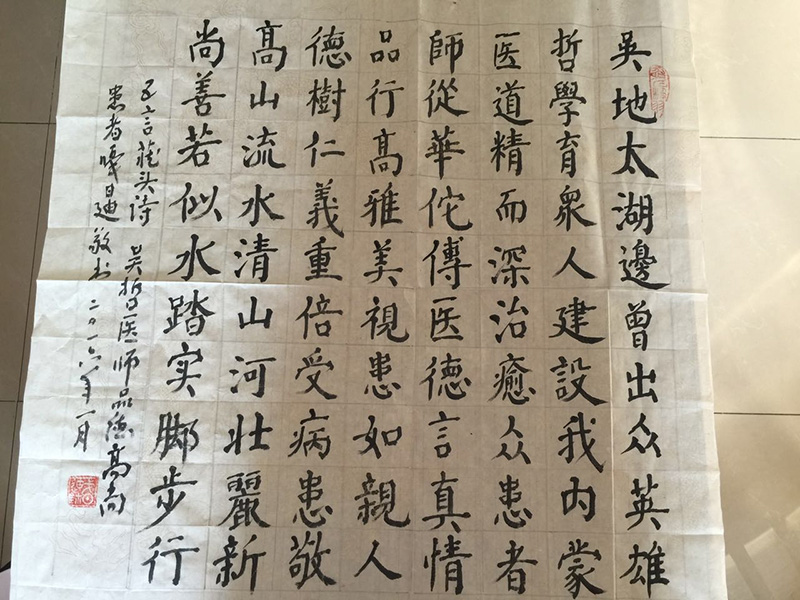 吳地太湖邊曾出众英雄
哲學育衆人建設我内蒙
医道精而深治癒众患者
師從華佗傳医德言真情
品行高雅美視患如親人
德樹仁義重倍受病患敬
髙山流水清山河壮麗新
尚善若似水踏实脚步行
五言藏头诗 吴哲医师品德高尚
患者嘎日迪敬书 二〇一六年一月